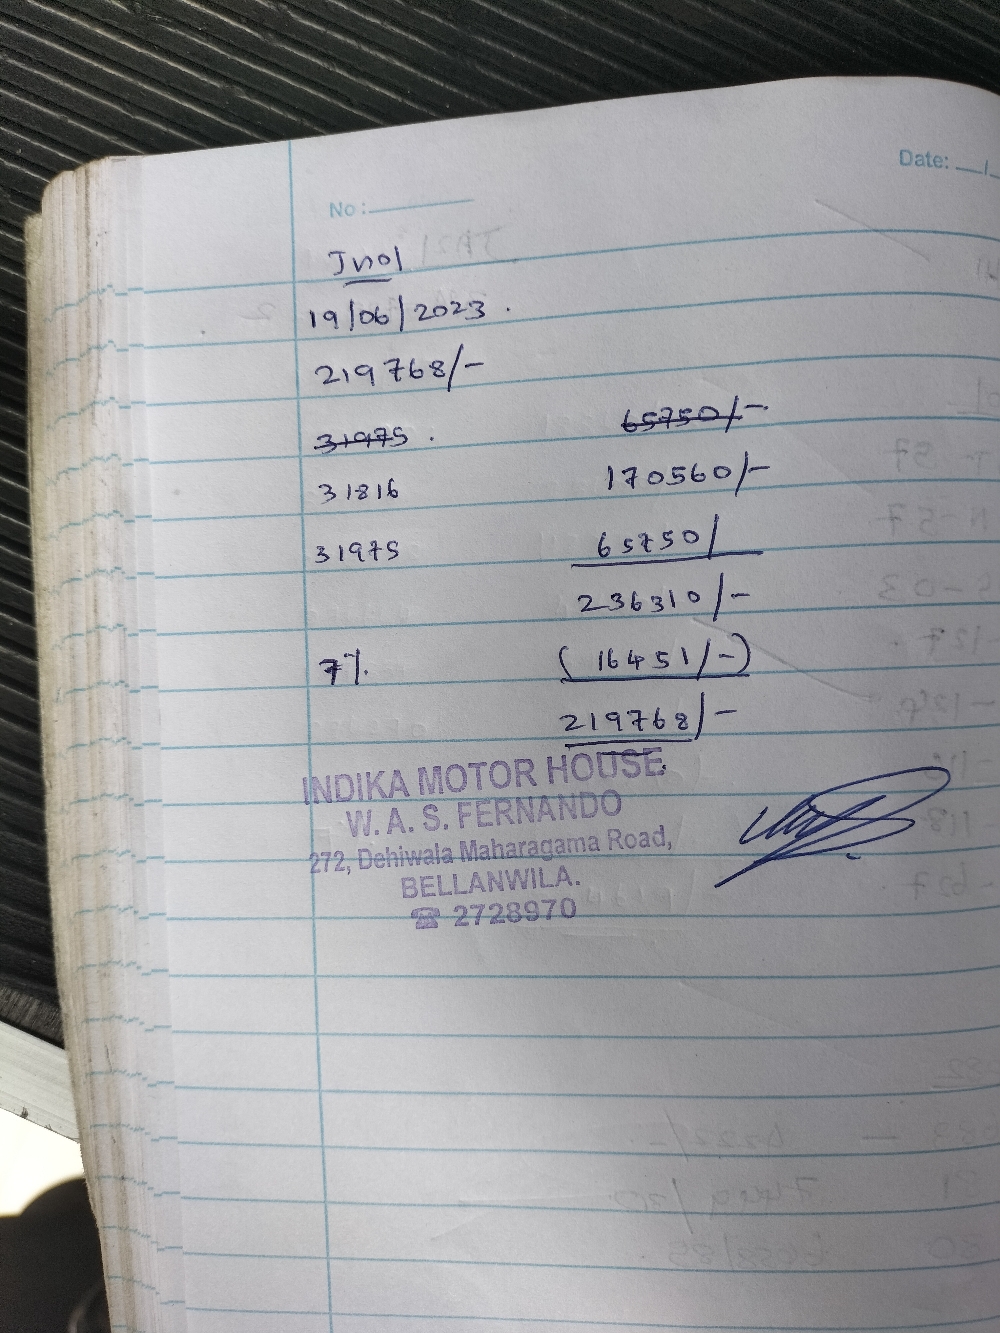 Date: __/_
No :
Jnol
19/06/2023 .
219768/-
31975 . 65750/-
31816 170560/-
31975 65750/
236310/-
7% (16451/-)
219768/-
INDIKA MOTOR HOUSE
W. A. S. FERNANDO
272, Dehiwala Maharagama Road,
BELLANWILA.
☎ 2728970